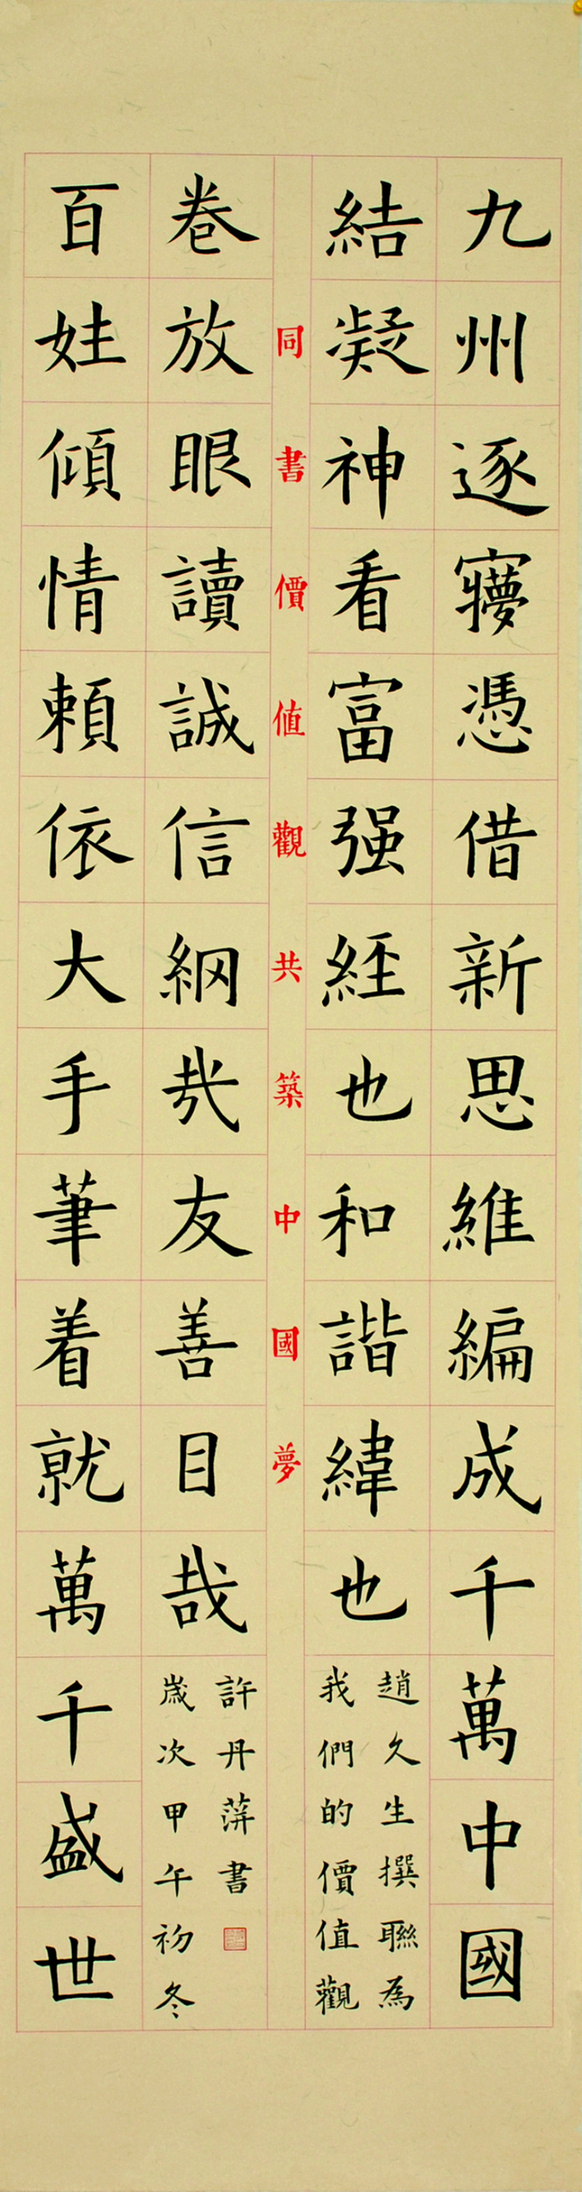 九州逐㝱憑借新思維編成千萬中國
結凝神看富强經也和諧緯也
趙久生撰聯為
我們的價值觀
同書價值觀共築中國夢
卷放眼讀誠信綱哉友善目哉
許丹萍書
歲次甲午初冬
百姓傾情賴依大手筆着就萬千盛世